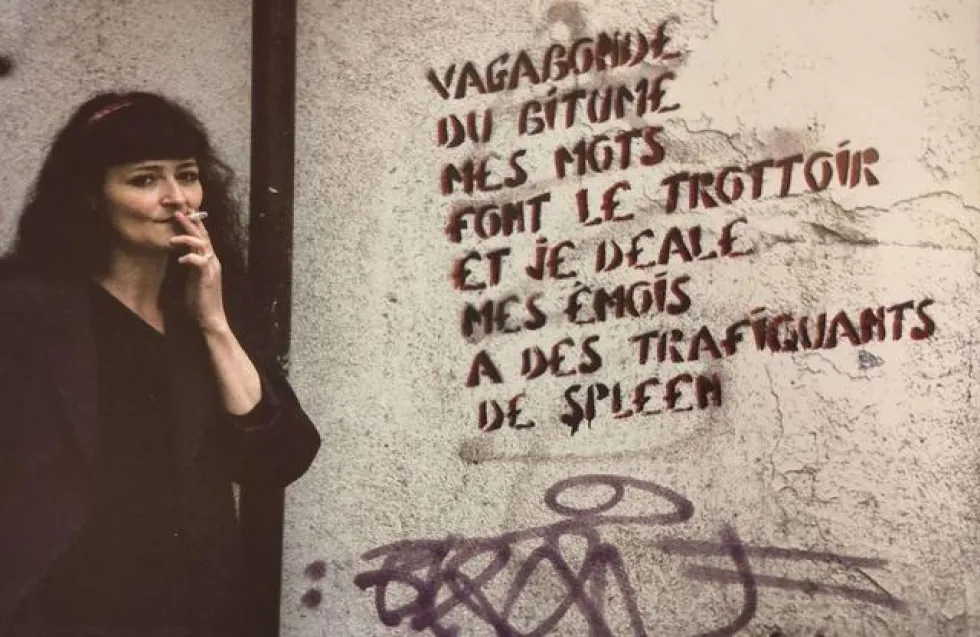 VAGABONDE
DU BITUME
MES MOTS
FONT LE TROTTOIR
ET JE DEALE
MES ÉMOIS
A DES TRAFIQUANTS
DE SPLEEN